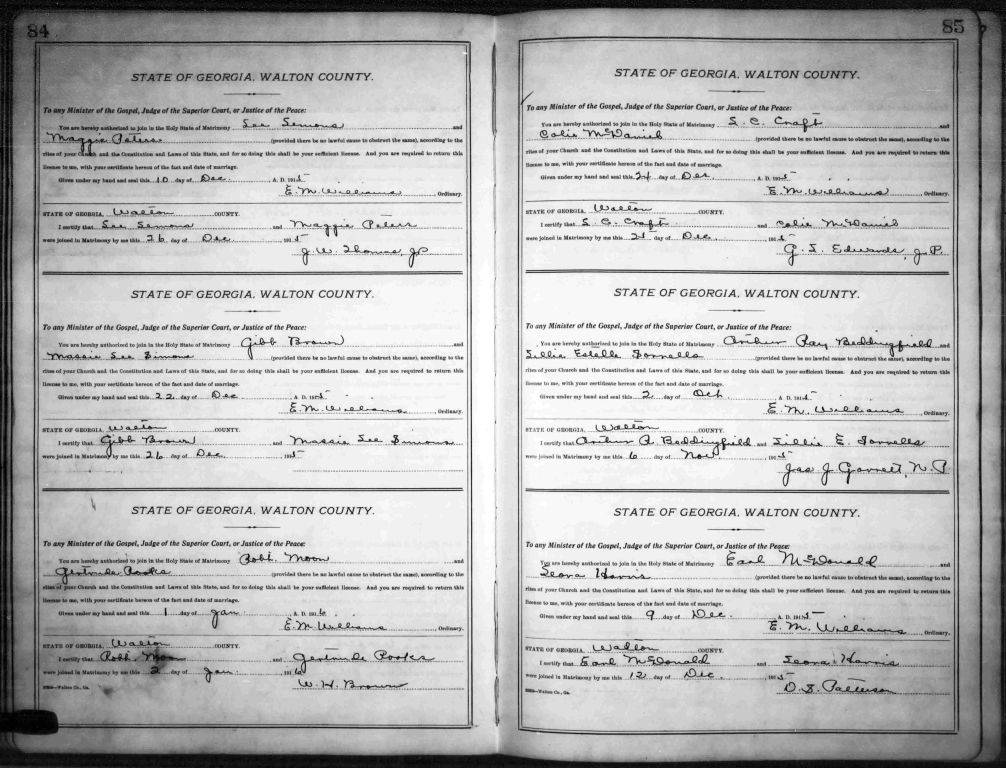 84
STATE OF GEORGIA, WALTON COUNTY.
To any Minister of the Gospel, Judge of the Superior Court, or Justice of the Peace:
You are hereby authorized to join in the Holy State of Matrimony Lee Semons and
Maggie Peters (provided there be no lawful cause to obstruct the same), according to the
rites of your Church and the Constitution and Laws of this State, and for so doing this shall be your sufficient license. And you are required to return this
license to me, with your certificate hereon of the fact and date of marriage.
Given under my hand and seal this 10 day of Dec. A. D. 1915
E. M. Williams, Ordinary.
STATE OF GEORGIA, Walton COUNTY.
I certify that Lee Semons and Maggie Peters
were joined in Matrimony by me this 26 day of Dec. 1915
J. W. Thomas, JP
STATE OF GEORGIA, WALTON COUNTY.
To any Minister of the Gospel, Judge of the Superior Court, or Justice of the Peace:
You are hereby authorized to join in the Holy State of Matrimony Gibb Brown and
Massie Lee Simons (provided there be no lawful cause to obstruct the same), according to the
rites of your Church and the Constitution and Laws of this State, and for so doing this shall be your sufficient license. And you are required to return this
license to me, with your certificate hereon of the fact and date of marriage.
Given under my hand and seal this 22 day of Dec A. D. 1915
E. M. Williams, Ordinary.
STATE OF GEORGIA, Walton COUNTY.
I certify that Gibb Brown and Massie Lee Simons
were joined in Matrimony by me this 26 day of Dec. 1915
STATE OF GEORGIA, WALTON COUNTY.
To any Minister of the Gospel, Judge of the Superior Court, or Justice of the Peace:
You are hereby authorized to join in the Holy State of Matrimony Robt. Moon and
Gertrude Rooks (provided there be no lawful cause to obstruct the same), according to the
rites of your Church and the Constitution and Laws of this State, and for so doing this shall be your sufficient license. And you are required to return this
license to me, with your certificate hereon of the fact and date of marriage.
Given under my hand and seal this 1 day of Jan A. D. 1916
E. M. Williams, Ordinary.
STATE OF GEORGIA, Walton COUNTY.
I certify that Robt. Moon and Gertrude Rooks
were joined in Matrimony by me this 2 day of Jan 1916
Walton Co., Ga. W. H. Brown
85
STATE OF GEORGIA, WALTON COUNTY.
To any Minister of the Gospel, Judge of the Superior Court, or Justice of the Peace:
You are hereby authorized to join in the Holy State of Matrimony L. C. Craft and
Colie McDaniel (provided there be no lawful cause to obstruct the same), according to the
rites of your Church and the Constitution and Laws of this State, and for so doing this shall be your sufficient license. And you are required to return this
license to me, with your certificate hereon of the fact and date of marriage.
Given under my hand and seal this 24 day of Dec A. D. 1915
E. M. Williams, Ordinary.
STATE OF GEORGIA, Walton COUNTY.
I certify that L. C. Craft and Colie McDaniel
were joined in Matrimony by me this 25 day of Dec. 1915
G. L. Edwards, J. P.
STATE OF GEORGIA, WALTON COUNTY.
To any Minister of the Gospel, Judge of the Superior Court, or Justice of the Peace:
You are hereby authorized to join in the Holy State of Matrimony Arthur Ray Beddingfield and
Lillie Estelle Sorrells (provided there be no lawful cause to obstruct the same), according to the
rites of your Church and the Constitution and Laws of this State, and for so doing this shall be your sufficient license. And you are required to return this
license to me, with your certificate hereon of the fact and date of marriage.
Given under my hand and seal this 2 day of Oct A. D. 1915
E. M. Williams, Ordinary.
STATE OF GEORGIA, Walton COUNTY.
I certify that Arthur R. Beddingfield and Lillie E. Sorrells
were joined in Matrimony by me this 6 day of Nov 1915
Jas J Garrett, N. P.
STATE OF GEORGIA, WALTON COUNTY.
To any Minister of the Gospel, Judge of the Superior Court, or Justice of the Peace:
You are hereby authorized to join in the Holy State of Matrimony Earl McDonald and
Leora Harris (provided there be no lawful cause to obstruct the same), according to the
rites of your Church and the Constitution and Laws of this State, and for so doing this shall be your sufficient license. And you are required to return this
license to me, with your certificate hereon of the fact and date of marriage.
Given under my hand and seal this 9 day of Dec. A. D. 1915
E. M. Williams, Ordinary.
STATE OF GEORGIA, Walton COUNTY.
I certify that Earl McDonald and Leora Harris
were joined in Matrimony by me this 12 day of Dec. 1915
Walton Co., Ga. D. S. Patterson